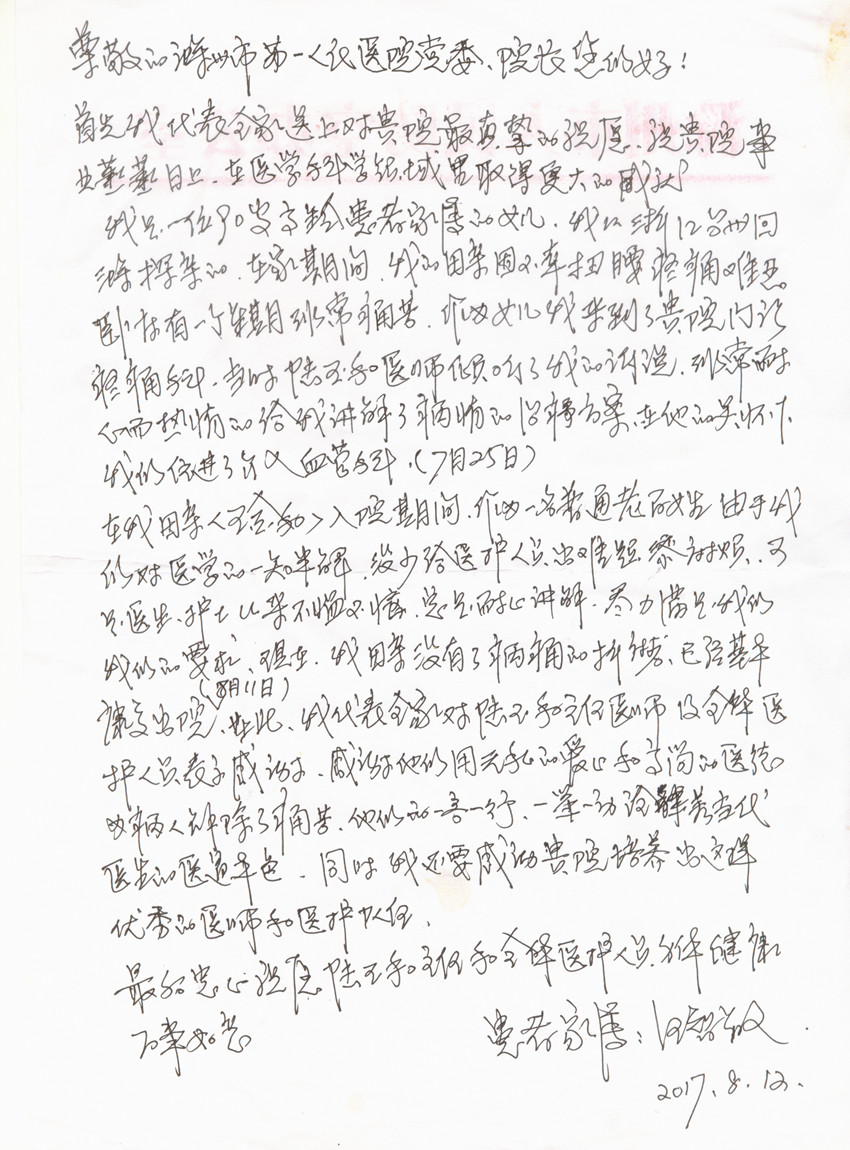 尊敬的滁州市第一人民医院党委、院长您们好！
首先我代表全家送上对贵院最真挚的祝愿、祝贵院事
业蒸蒸日上、在医学科学领域里取得更大的成就
我是一位90岁高龄患者家属的女儿，我从浙江台州回
滁探亲的，在家期间，我的母亲因不幸扭腰疼痛难忍。
卧床有一个星期非常痛苦，作为女儿我来到了贵院门诊
疼痛科，当时陆玉和医师倾听了我的诉说，非常耐
心而热情的给我讲解了病情的治疗方案、在他的关怀下，
我们住进了介入血管科，(7月25日)
在我母亲入院期间，作为一名普通老百姓由于我
们对医学的一知半解，没少给医护人员出难题添麻烦，可
是医生、护士从来不恼不惊、总是耐心讲解，尽力满足我们
我们的要求、现在，我母亲没有了病痛的折磨、已经基本
(8月11日)
康复出院、在此、我代表全家对陆玉和主任医师及全体医
护人员表示感谢，感谢他们用无私的爱心和高尚的医德
为病人解除了痛苦，他们的一言一行、一举一动诠释着当代
医生的医道本色，同时我还要感动贵院培养出这样
优秀的医师和医护队伍，
最后忠心祝愿陆玉和主任和全体医护人员身体健康
万事如意
患者家属：
2017.8.12.